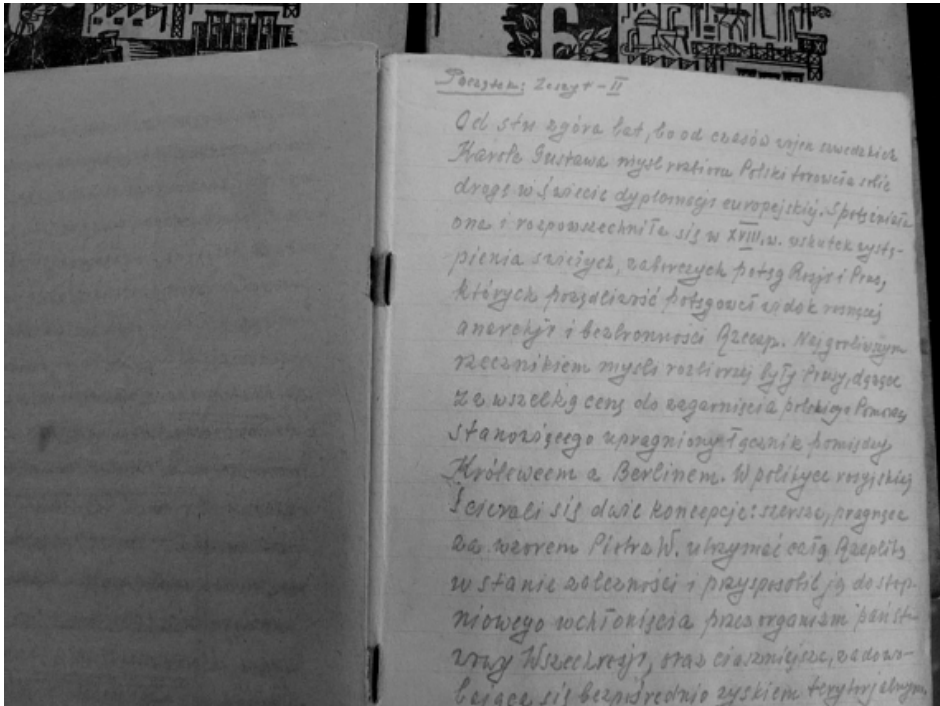 6
Początek: Zeszyt - II
Od stu zgóra lat, bo od czasów wojen szwedzkich
Karola Gustawa myśl rozbioru Polski torowała sobie
drogę w świecie dyplomacji europejskiej. Spotężniała
ona i rozpowszechniła się w XVIII. w. wskutek wystą-
pienia świeżych, zaborczych potęg Rosji i Prus,
których pożądliwość potęgował widok rosnącej
anarchji i bezbronności Rzeczp. Najgorliwszym
rzecznikiem myśli rozbiorczej były Prusy, dążące
za wszelką cenę do zagarnięcia polskiego Pomorza,
stanowiącego upragniony łącznik pomiędzy
Królewcem a Berlinem. W polityce rosyjskiej
ścierali się dwie koncepcje: szersza, pragnąca
za wzorem Piotra W. utrzymać całą Rzeplitą
w stanie zależności i przysposobić ją do stop-
niowego wchłonięcia przez organizm państ-
wowy Wszechrosji, oraz ciaśniejsza, zadowa-
lająca się bezpośrednio zyskiem terytorjalnym.